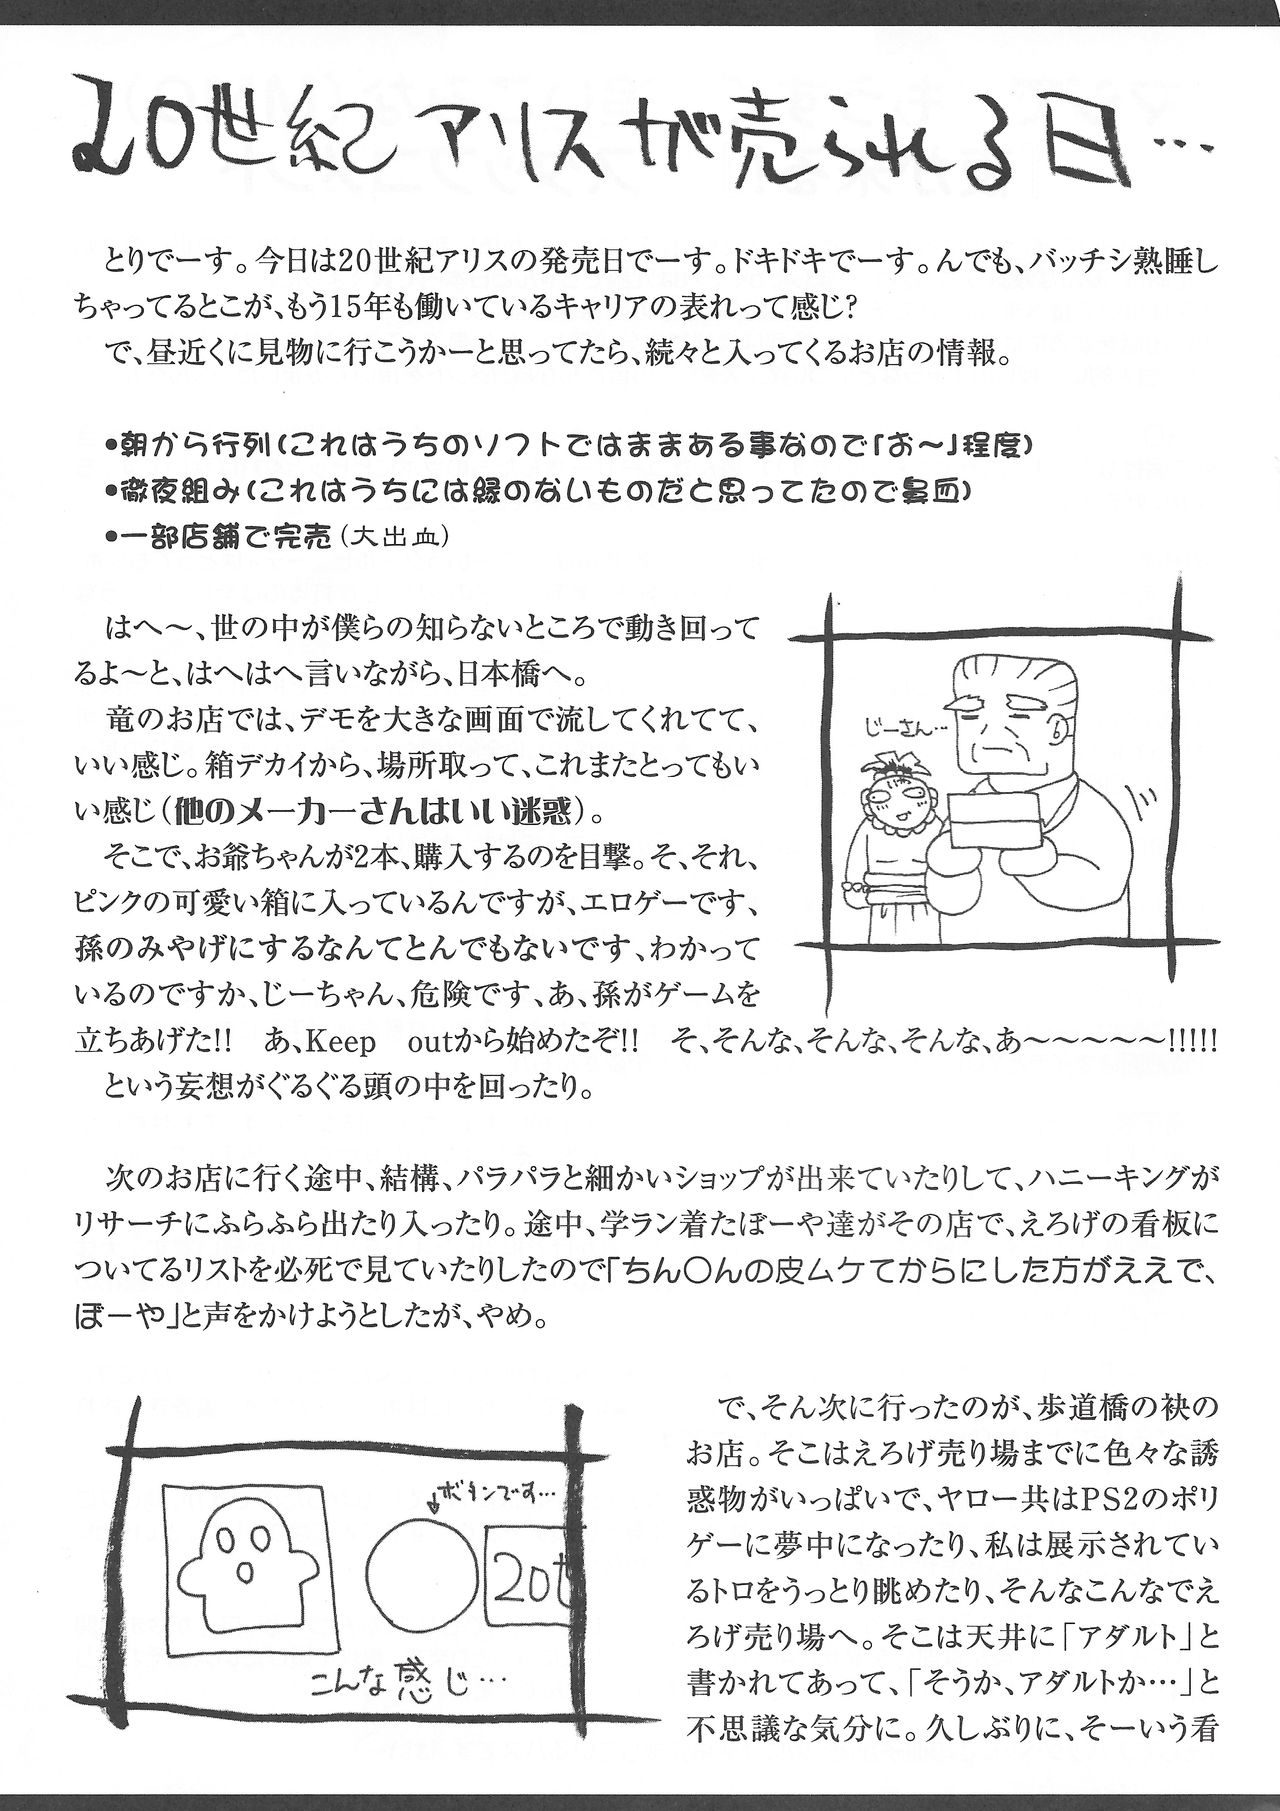 20世紀アリスが売られる日…
とりでーす。今日は20世紀アリスの発売日でーす。ドキドキでーす。んでも、バッチシ熟睡し
ちゃってるとこが、もう15年も働いているキャリアの表れって感じ?
で、昼近くに見物に行こうかーと思ってたら、続々と入ってくるお店の情報。
●朝から行列(これはうちのソフトではままある事なので「お〜」程度)
●徹夜組み(これはうちには縁のないものだと思ってたので鼻血)
●一部店舗で完売(大出血)
はへ〜、世の中が僕らの知らないところで動き回って
るよ〜と、はへはへ言いながら、日本橋へ。
竜のお店では、デモを大きな画面で流してくれてて、
いい感じ。箱デカイから、場所取って、これまたとってもい
い感じ(他のメーカーさんはいい迷惑)。
そこで、お爺ちゃんが2本、購入するのを目撃。そ、それ、
ピンクの可愛い箱に入っているんですが、エロゲーです、
孫のみやげにするなんてとんでもないです、わかって
いるのですか、じーちゃん、危険です、あ、孫がゲームを
立ちあげた!! あ、Keep outから始めたぞ!! そ、そんな、そんな、そんな、あ〜〜〜〜〜!!!!!
という妄想がぐるぐる頭の中を回ったり。
じーさん…
次のお店に行く途中、結構、パラパラと細かいショップが出来ていたりして、ハニーキングが
リサーチにふらふら出たり入ったり。途中、学ラン着たぼーや達がその店で、えろげの看板に
ついてるリストを必死で見ていたりしたので「ちん〇んの皮ムケてからにした方がええで、
ぼーや」と声をかけようとしたが、やめ。
ボタンです…
20t
こんな感じ…
で、そん次に行ったのが、歩道橋の袂の
お店。そこはえろげ売り場までに色々な誘
惑物がいっぱいで、ヤロー共はPS2のポリ
ゲーに夢中になったり、私は展示されてい
るトロをうっとり眺めたり、そんなこんなでえ
ろげ売り場へ。そこは天井に「アダルト」と
書かれてあって、「そうか、アダルトか…」と
不思議な気分に。久しぶりに、そーいう看